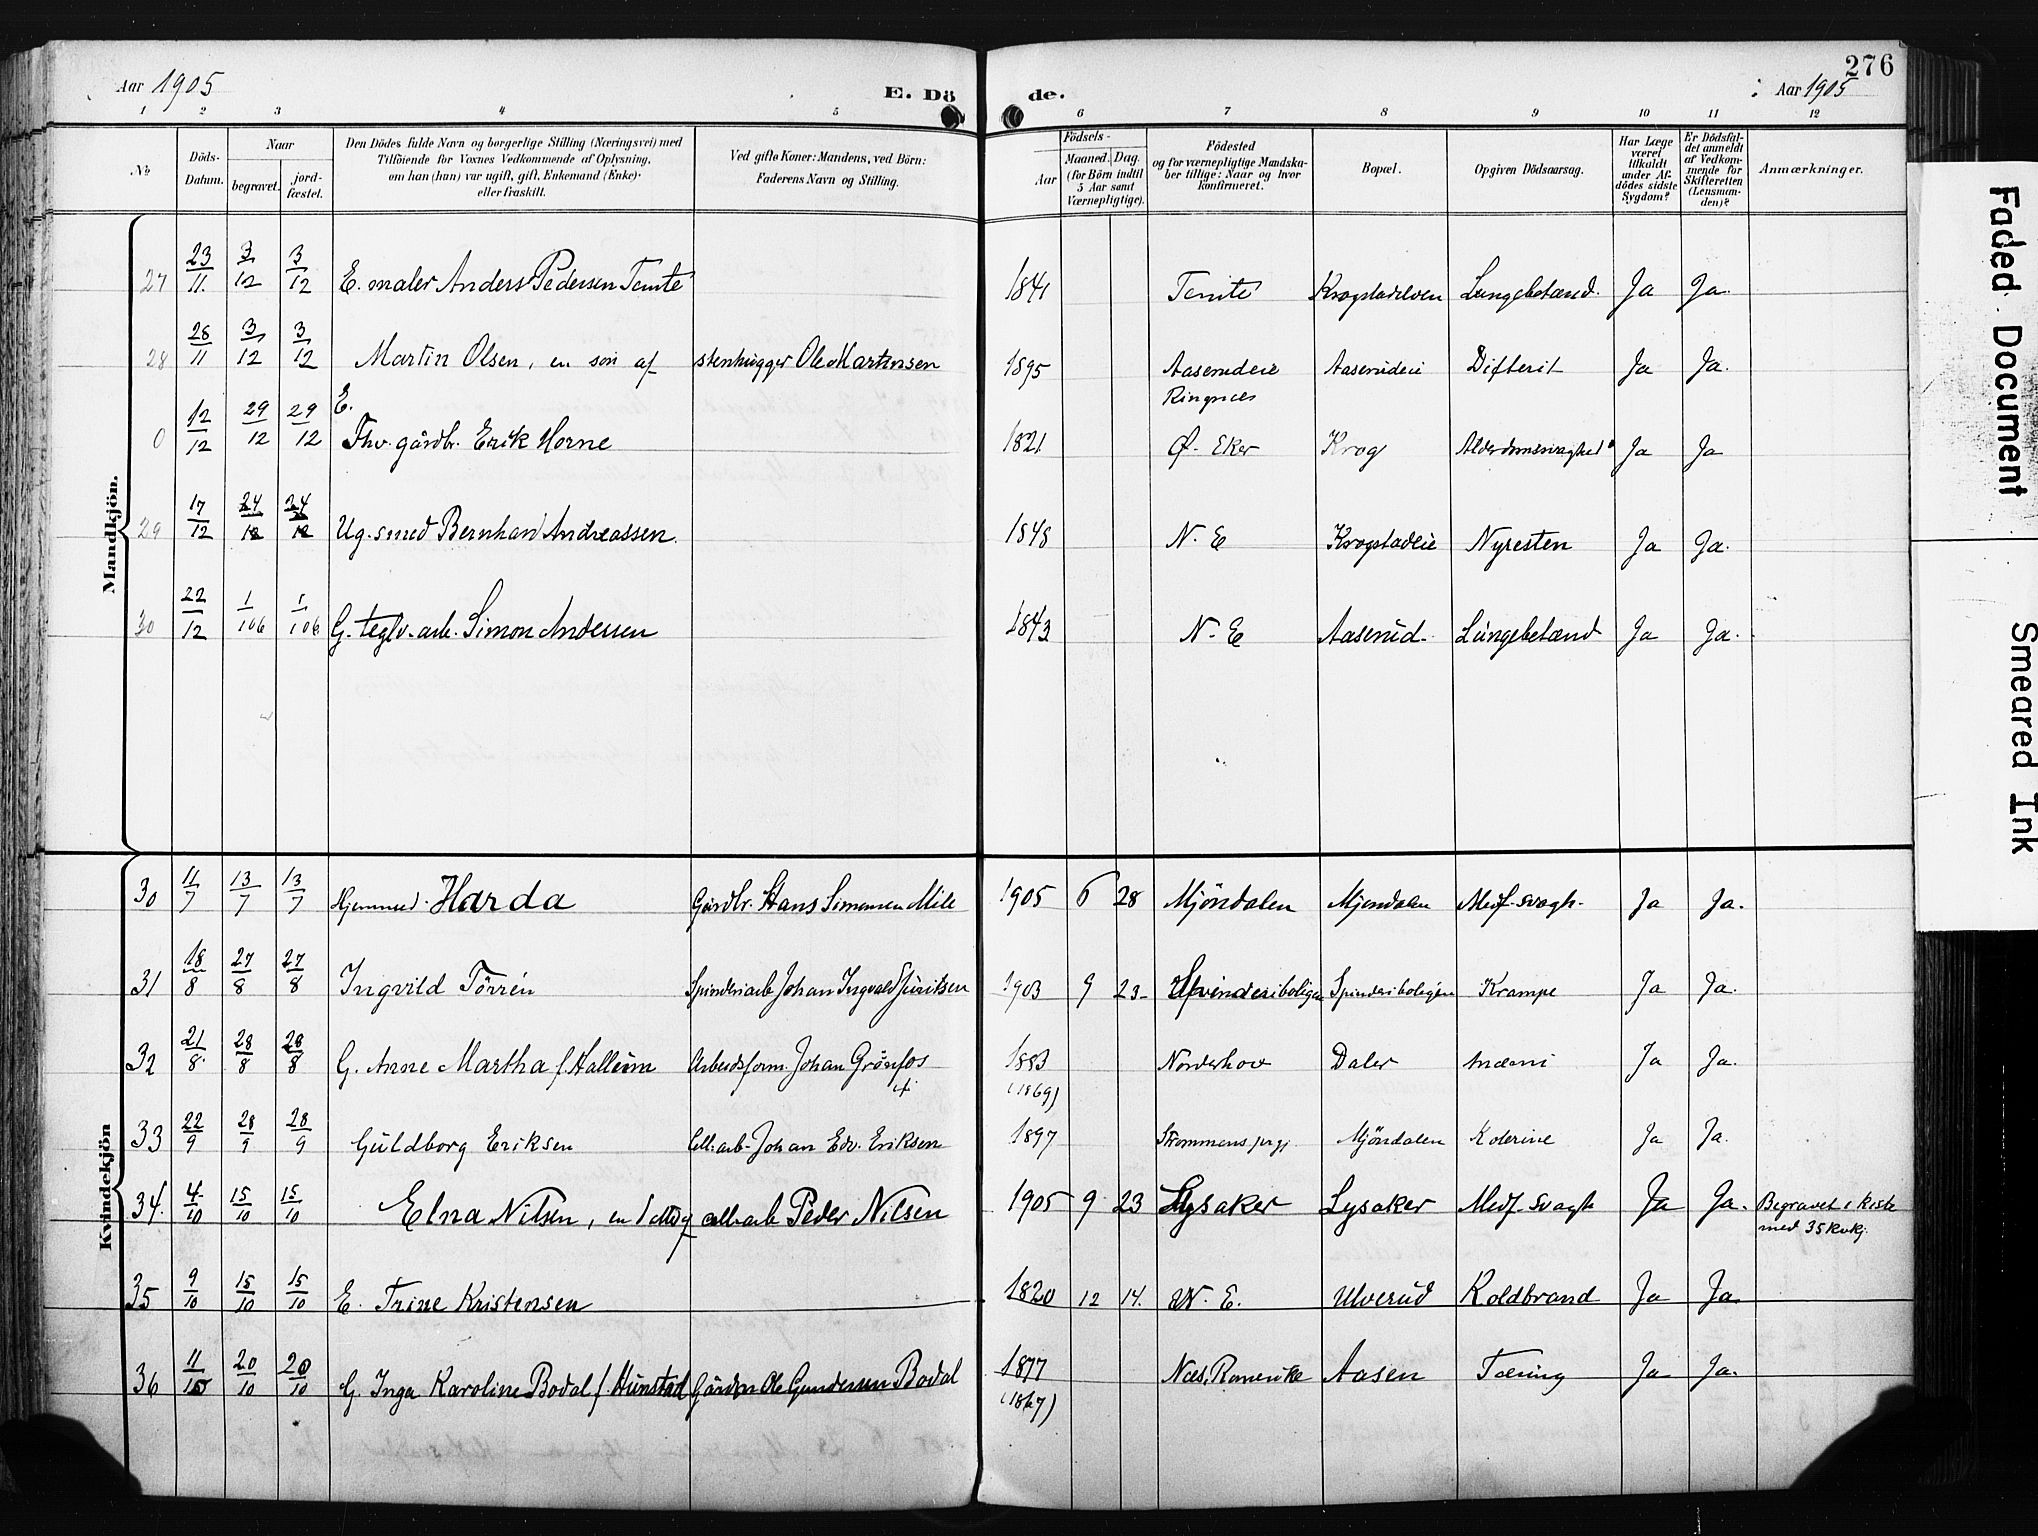 276
Aar 1905
E. Dö de.
Aar 1905
1 2 3 4 5 6 7 8 9 10 11 12
No
Döds-Datum.
Naar
begravet.
jord-fæstet.
Den Dödes fulde Navn og borgerlige Stilling (Næringsvei) med
Tilföiende for Voxnes Vedkommende af Oplysning,
om han (hun) var ugift, gift, Enkemand (Enke)
eller fraskilt.
Ved gifte Koner: Mandens, ved Börn:
Faderens Navn og Stilling.
Födsels-
Aar
Maaned. Dag.
(for Börn indtil
5 Aar samt
Værnepligtige).
Födested
og for værnepligtige Mandska-
ber tillige: Naar og hvor
konfirmeret.
Bopæl.
Opgiven Dödsaarsag.
Har Læge
været
tilkaldt
under Af-
dödes sidste
Sygdom?
Er Dödsfal-
det anmeldt
af Vedkom-
mende for
Skifteretten
(Lensman-
den)?
Anmærkninger.
Mandkjön.
27 23/11 3/12 3/12 E. maler Anders Pedersen Temte 1841 Temte Krogstadelven Lungebetænd. Ja Ja.
28 28/11 3/12 3/12 Martin Olsen, en sön af stenhugger Ole Martinsen 1895 Aaserudeie Aaserudeie Difterit Ja Ja.
Ringnes
E.
0 12/12 29/12 29/12 Fhv. gårdbr. Erik Horne 1821 Ø. Eker Krog Alderdomssvaghed Ja Ja
29 17/12 24/12 24/12 Ug. smed Bernhard Andreassen. 1848 N. E Krogstadeie Nyresten Ja Ja.
30 22/12 1/1 06 1/1 06 G. teglv. arb. Simon Andersen 1843 N. E Aaserud. Lungebetænd Ja Ja.
Kvindekjön
30 11/7 13/7 13/7 Hjemmed. Harda Gårdbr. Hans Simensen Mile 1905 6 28 Mjöndalen Mjöndalen Medf. svagh. Ja Ja.
31 18/8 27/8 27/8 Ingvild Törrén Spinderiarb Johan Ingvald 1903 9 23 Spinderiboligen Spinderiboligen Krampe Ja Ja.
32 21/8 28/8 28/8 G. Anne Martha f. Halleim Arbeidsform. Johan Grönfos 1883 Norderhov Daler Anæmi Ja Ja.
(1869)
33 22/9 28/9 28/9 Guldborg Eriksen Cell. arb. Johan Edv. Eriksen 1897 Mjöndalen Kolerine Ja Ja.
34. 4/10 15/10 15/10 Elna Nilsen, en cell. arb Peder Nilsen 1905 9 23 Lysaker Lysaker Medf. svagh Ja Ja. Begravet i kiste
med 35 kvkj.
35 9/10 15/10 15/10 E. Trine Kristensen 1820 12 14. N. E. Ulverud Koldbrand Ja Ja
36 11/10 20/10 20/10 G Inga Karoline Bodal f. Hunstad Gårdbr Ole Gundersen Bodal 1877 Næs, Romerike Aasen Tæring Ja Ja.
(1867)
Faded Document
Smeared Ink